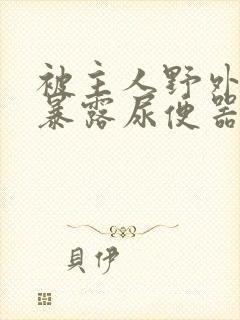 被主人野外
暴露尿便器
貝伊